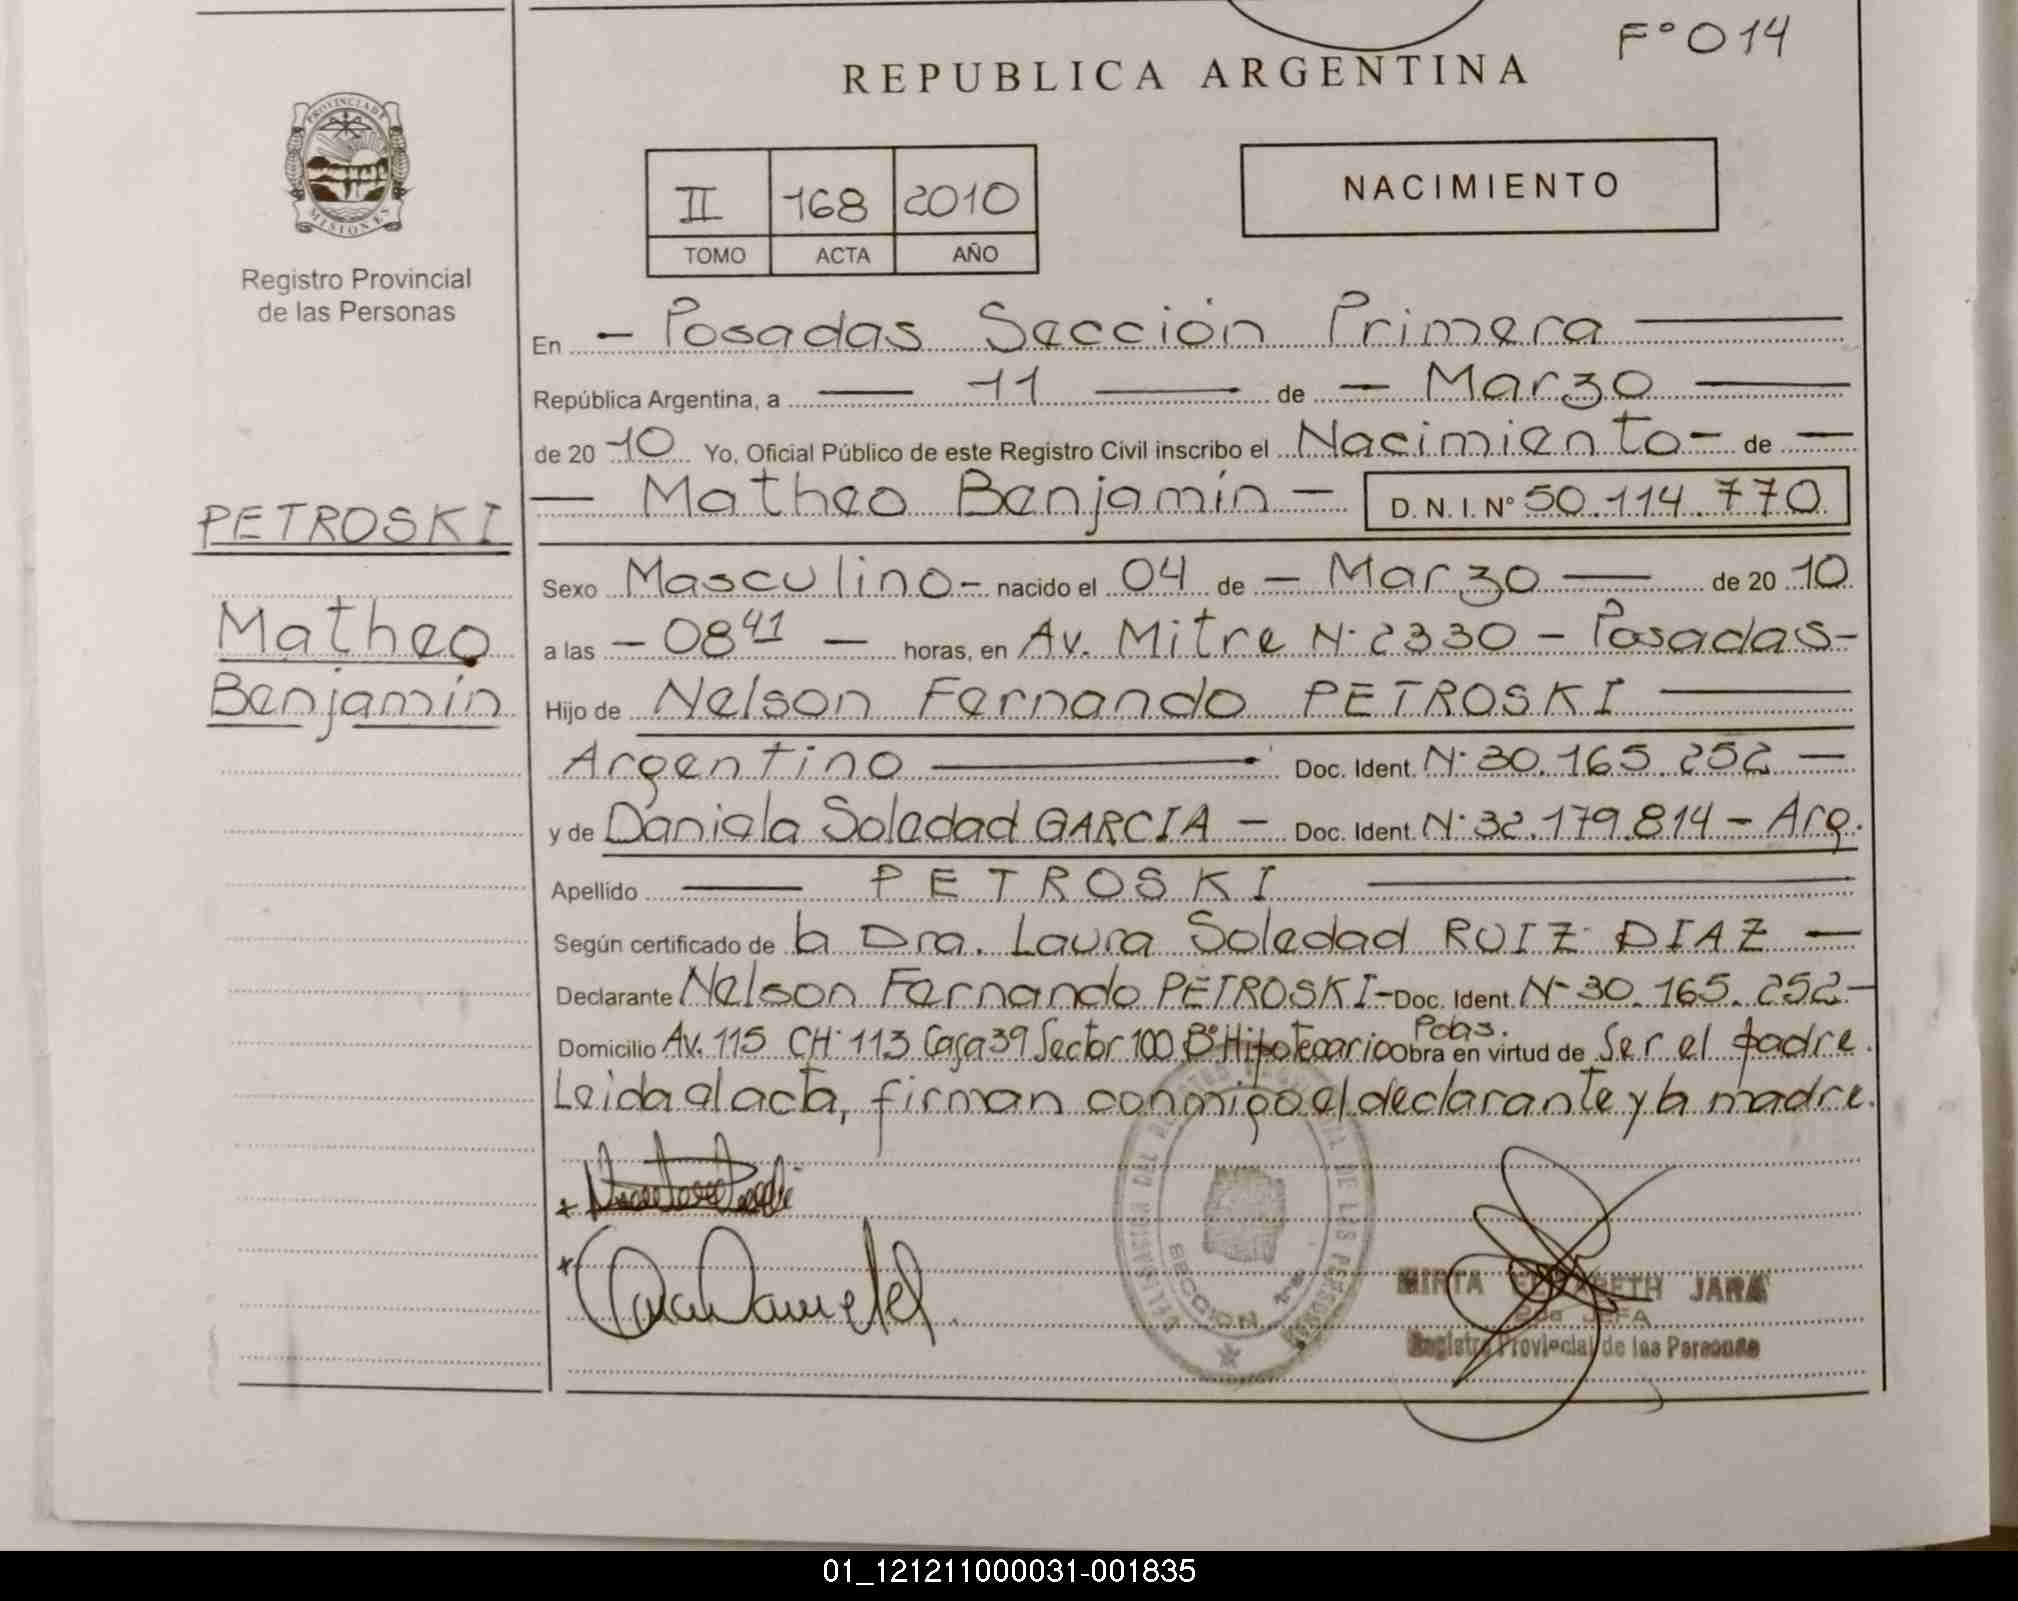 F° 014
REPUBLICA ARGENTINA
PROVINCIA DE
MISIONES
Registro Provincial
de las Personas
II 168 2010
TOMO ACTA AÑO
NACIMIENTO
En - Posadas Sección Primera
República Argentina, a 11 de - Marzo
de 20 10 Yo, Oficial Público de este Registro Civil inscribo el Nacimiento - de -
- Matheo Benjamín - D. N. I. N° 50.114.770
PETROSKI
Matheo
Benjamín
Sexo Masculino - nacido el 04 de - Marzo - de 20 10
a las - 08 41 - horas, en Av. Mitre N° 2330 - Posadas -
Hijo de Nelson Fernando PETROSKI
Argentino Doc. Ident. N° 30.165.252 -
y de Daniela Soledad GARCIA - Doc. Ident. N° 32.179.814 - Arg.
Apellido PETROSKI
Según certificado de la Dra. Laura Soledad RUIZ DIAZ -
Declarante Nelson Fernando PETROSKI - Doc. Ident. N° 30.165.252 -
Domicilio Av. 115 CH° 113 Casa 39 Sector 100 B° Hipotecario Pdas. Obra en virtud de Ser el padre.
Leida el acta, firman conmigo el declarante y la madre.
SECCION 1ra
MIRTA ELIZABETH JARA
JEFA
Registro Provincial de las Personas
01_121211000031-001835